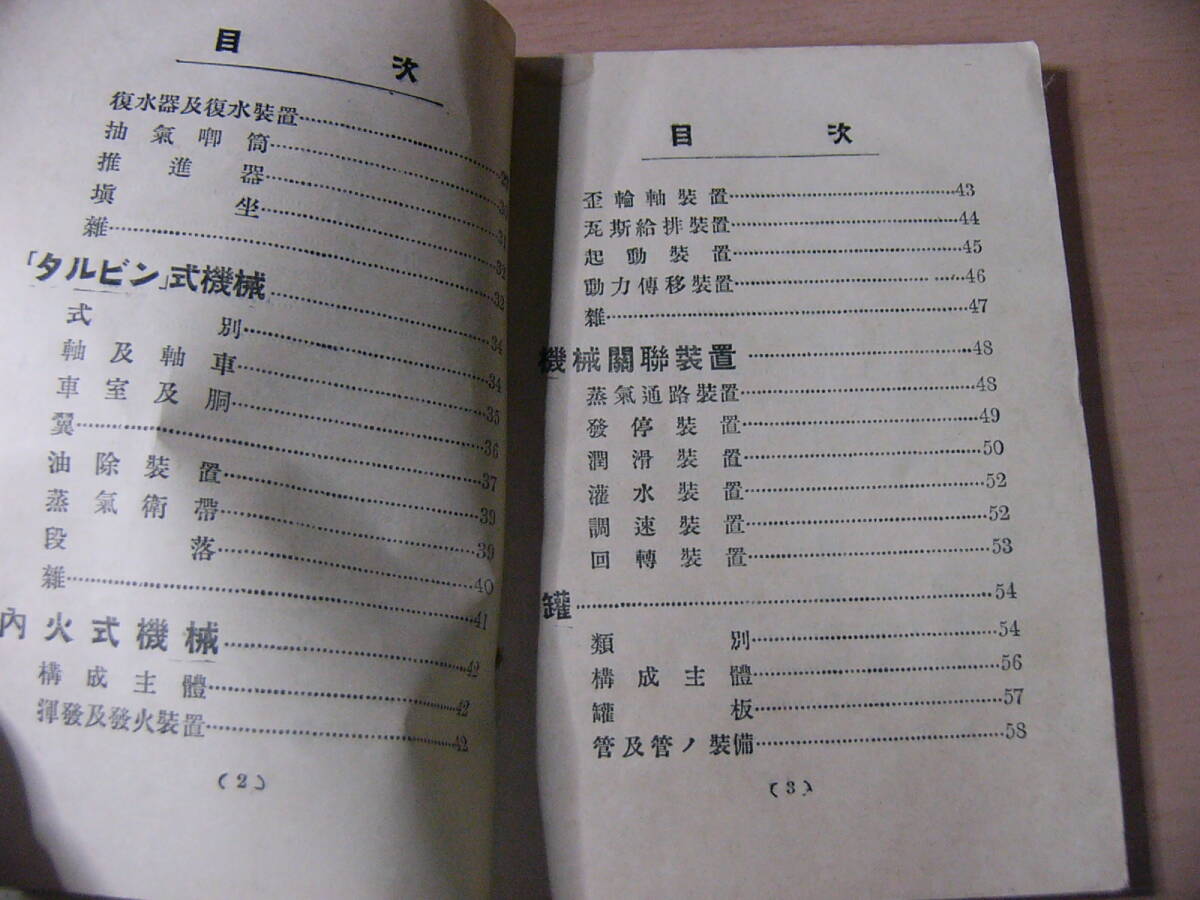 目次
復水器及復水裝置……29
抽氣喞筒……30
推進器……31
塡坐……32
雜……32
「タルビン」式機械……34
式別……34
軸及軸車……35
車室及胴……36
翼……37
油除裝置……39
蒸氣衛帶……39
段落……40
雜……41
內火式機械……42
構成主體……42
渾發及發火裝置……42
(2)
目次
歪輪軸裝置……43
瓦斯給排裝置……44
起動裝置……45
動力傳移裝置……46
雜……47
機械關聯裝置……48
蒸氣通路裝置……48
發停裝置……49
潤滑裝置……50
灌水裝置……52
調速裝置……52
回轉裝置……53
罐……54
類別……54
構成主體……56
罐板……57
管及管ノ裝備……58
(3)